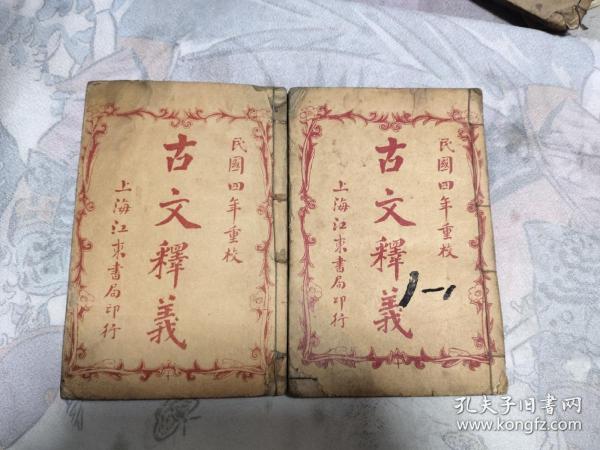 民國四年重校
古文釋義
上海江東書局印行
民國四年重校
古文釋義
上海江東書局印行
孔夫子旧书网
www.kongfz.com